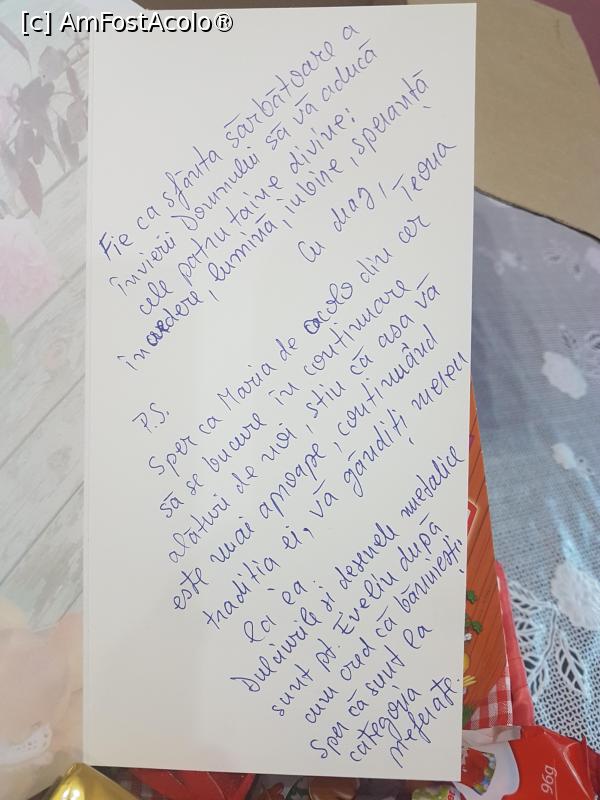 [c] AmFostAcolo®
Fie ca sfânta sărbătoare a
învierii Domnului să vă aducă
cele patru taine divine:
încredere, lumină, iubire, speranță
Cu drag, Teona
P.S.
Sper ca Maria de acolo din cer
să se bucure în continuare
alături de noi, stiu că asa vă
este mai aproape, continuând
traditia ei, vă gândiți mereu
la ea.
Dulciurile si desenele metalice
sunt pt. Evelin după
cum cred că bănuiești
Sper că sunt la
categoria
preferate.
96g